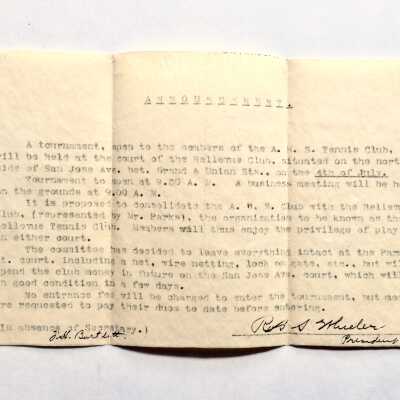 ANNOUNCEMENT.
A tournament, open to the members of the A. H. S. Tennis Club,
will be held at the court of the Bellevue Club, situated on the north
side of San Jose Ave. bet. Grand & Union Sts., on the 4th of July.
Tournament to open at 9.00 A. M. A business meeting will be he
on the grounds at 9.00 A. M.
It is proposed to consolidate the A. H. S. Club with the Bellev
Club, (represented by Mr. Parks), the organization to be known as the
Bellevue Tennis Club. Members will thus enjoy the privilege of play
on either court.
The committee has decided to leave everything intact at the Par
t. court, including a net, wire netting, lock on gate, etc., but wil
pend the club money in future on the San Jose Ave. court, which wil
n good condition in a few days.
No entrance fee will be charged to enter the tournament, but mem
re requested to pay their dues to date before entering.
(in absence of Secretary.)
J.H. Burdett.
Wheeler
President